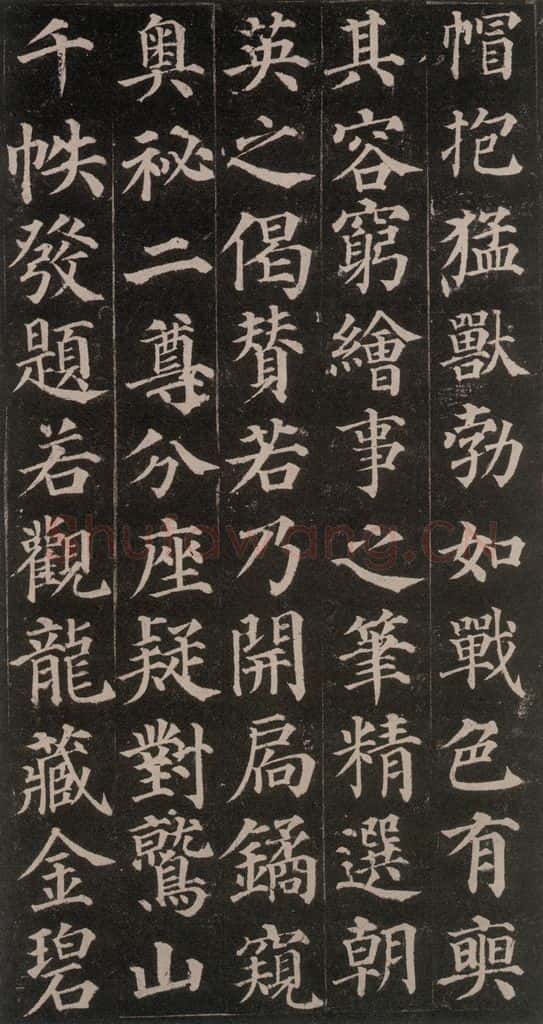 帽抱猛獸勃如戰色有奭
其容窮繪事之筆精選朝
英之偈贊若乃開扃鐍窺
奧祕二尊分座疑對鷲山
千帙發題若觀龍藏金碧
shufawang.CN